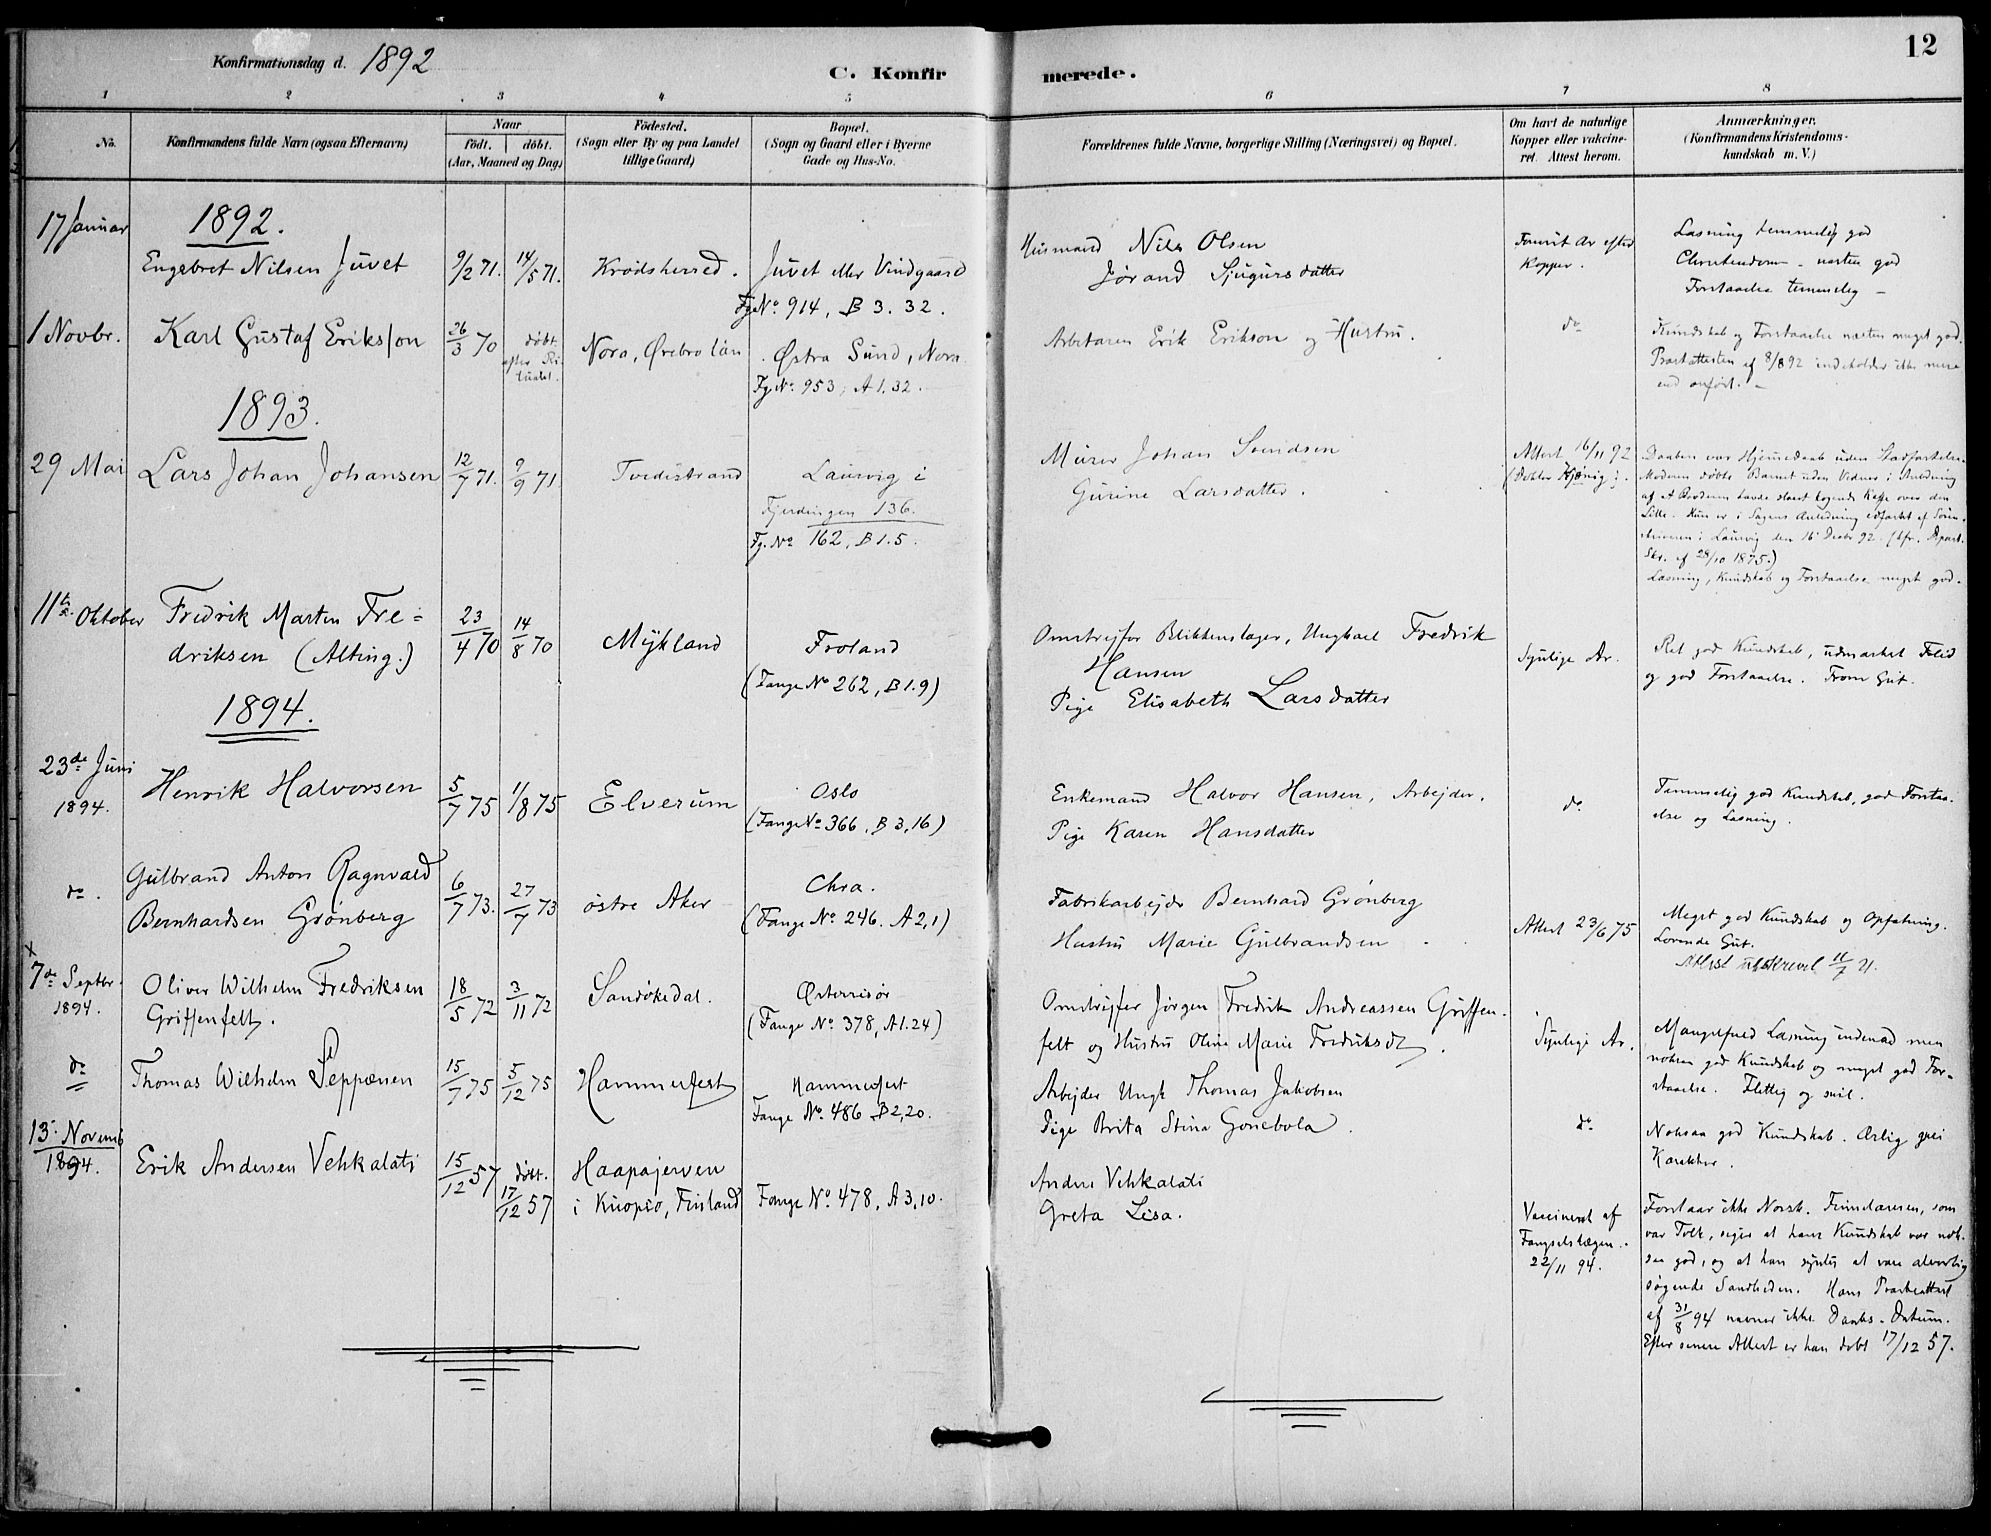 Konfirmationsdag d. 1892
C. Konfirmerede.
12
1 2 3 4 5 6 7 8
No.
Konfirmandens fulde Navn (ogsaa Efternavn)
Naar
födt. döbt.
(Aar, Maaned og Dag)
Födested.
(Sogn eller By og paa Landet
tillige Gaard)
Bopæl.
(Sogn og Gaard eller i Byerne
Gade og Hus-No.
Forældrenes fulde Navne, borgerlige Stilling (Næringsvei) og Bopæl.
Om havt de naturlige
Kopper eller vakcine-
ret. Attest herom.
Anmærkninger.
(Konfirmandens Kristendoms-
kundskab m. V.)
1892.
17 Januar
Engebret Nilsen Juvet
9/2 71. 14/5 71.
Krødsherred.
Juvet eller Vindgaard
Fg No. 914, B 3. 32.
Husmand Nils Olsen
Jørand Sjugursdatter
Ar efter
Kopper.
Læsning temmelig god
Christendom - næsten god
Forstaaelse temmelig -
1 Novbr.
Karl Gustaf Eriksson
26/3 70
døbt
efter Ri-
tualet.
Nora, Ørebro län
Østra Sund, Nora
Fg No. 953, A 1. 32.
Arbetaren Erik Erikson og Hustru.
do
Kundskab og Forstaaelse næsten meget god.
Præstattesten af 8/8 92 indeholder ikke mere
end anført. -
1893.
29 Mai
Lars Johan Johansen
12/7 71. 9/9 71
Tvedestrand
Laurvig i
Fjerdingen 136.
Fg. No 162, B 1. 5.
Murer Johan Svendsen
Gurine Larsdatter.
Attest 16/11 92
(Doktor
Daaben var Hjemmedaab uden
Moderen døbte Barnet uden Vidner i Anledning
af at Broderen havde slaaet kogende Kaffe over den
Lille. Hun er i Sagens Anledning edfæstet af Soren-
skriveren i Laurvig den 16 Decbr 92. (Cfr. Depart.
Skr. af 28/10 1875.)
Læsning, Kundskab og Forstaaelse meget god.
11te Oktober
Fredrik Marten Fre=
driksen (Alting.)
23/4 70 14/8 70
Mykland
Froland
(Fange No 262, B 1. 9)
Omstreifer Blikkenslager, Ungkarl Fredrik
Hansen
Pige Elisabeth Larsdatter
Synlige Ar.
Ret god Kundskab, udmærket Flid
og god Forstaaelse. From Gut.
1894.
23de Juni
1894.
Henrik Halvorsen
5/7 75 1/8 75
Elverum
Oslo
(Fange No 366, B 3, 16)
Enkemand Halvor Hansen, Arbejder.
Pige Karen Hansdatter
do
Temmelig god Kundskab, god Forstaa-
else og Læsning.
do.
Gulbrand Anton Ragnvald
Bernhardsen Grønberg
6/7 73. 27/7 73
østre Aker
Chra.
(Fange No 246. A 2, 1)
Fabrikarbejder Bernhard Grønberg
Hustru Marie Gulbrandsen
Attest 23/6 75
Meget god Kundskab og Opfatning.
Lovende Gut.
Attest utskrevet 11/7 21.
x
7de Septbr.
1894.
Oliver Wilhelm Fredriksen
Griffenfelt.
18/5 72 3/11 72
Sandøkedal.
Østerrisør
(Fange No. 378, A 1. 24)
Omstrejfer Jørgen Fredrik Andreassen Griffen-
felt og Hustru Oline Marie Fredriksdt.
Synlige Ar.
Mangelfuld Læsning indenad men
noksaa god Kundskab og meget god For-
staaelse. Flittig og snil.
do
Thomas Wilhelm Seppænen
15/7 75 5/12 75
Hammerfest
Hammerfest
Fange No. 486 B 2, 20.
Arbejder Ungk Thomas Jakobsen
Pige Brita Stina Gonebola.
do
Noksaa god Kundskab. Ærlig grei
Karakter.
13. Novemb
1894.
Erik Andersen Vehkalati
15/12 57
døbt.
17/12 57
Haapajerven
i Kuopio, Finland
Fange No. 478, A 3, 10.
Anders Vehkalati
Greta Lisa.
Vaccineret af
Fængselslægen.
22/11 94.
Forstaar ikke Norsk. Finnlænderen, som
var Tolk, siger at hans Kundskab var nok-
saa god, og at han syntes at være alvorlig
søgende Sandheden. Hans Præsteattest
af 31/8 94 nævner ikke Daabs-Datum.
Efter senere Attest er han døbt 17/12 57.